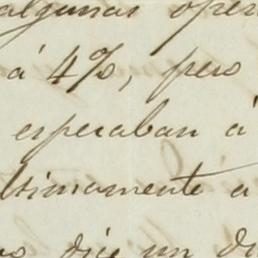 algunas oper
á 4%, pero
esperaban á
ltimamente a
dice un di